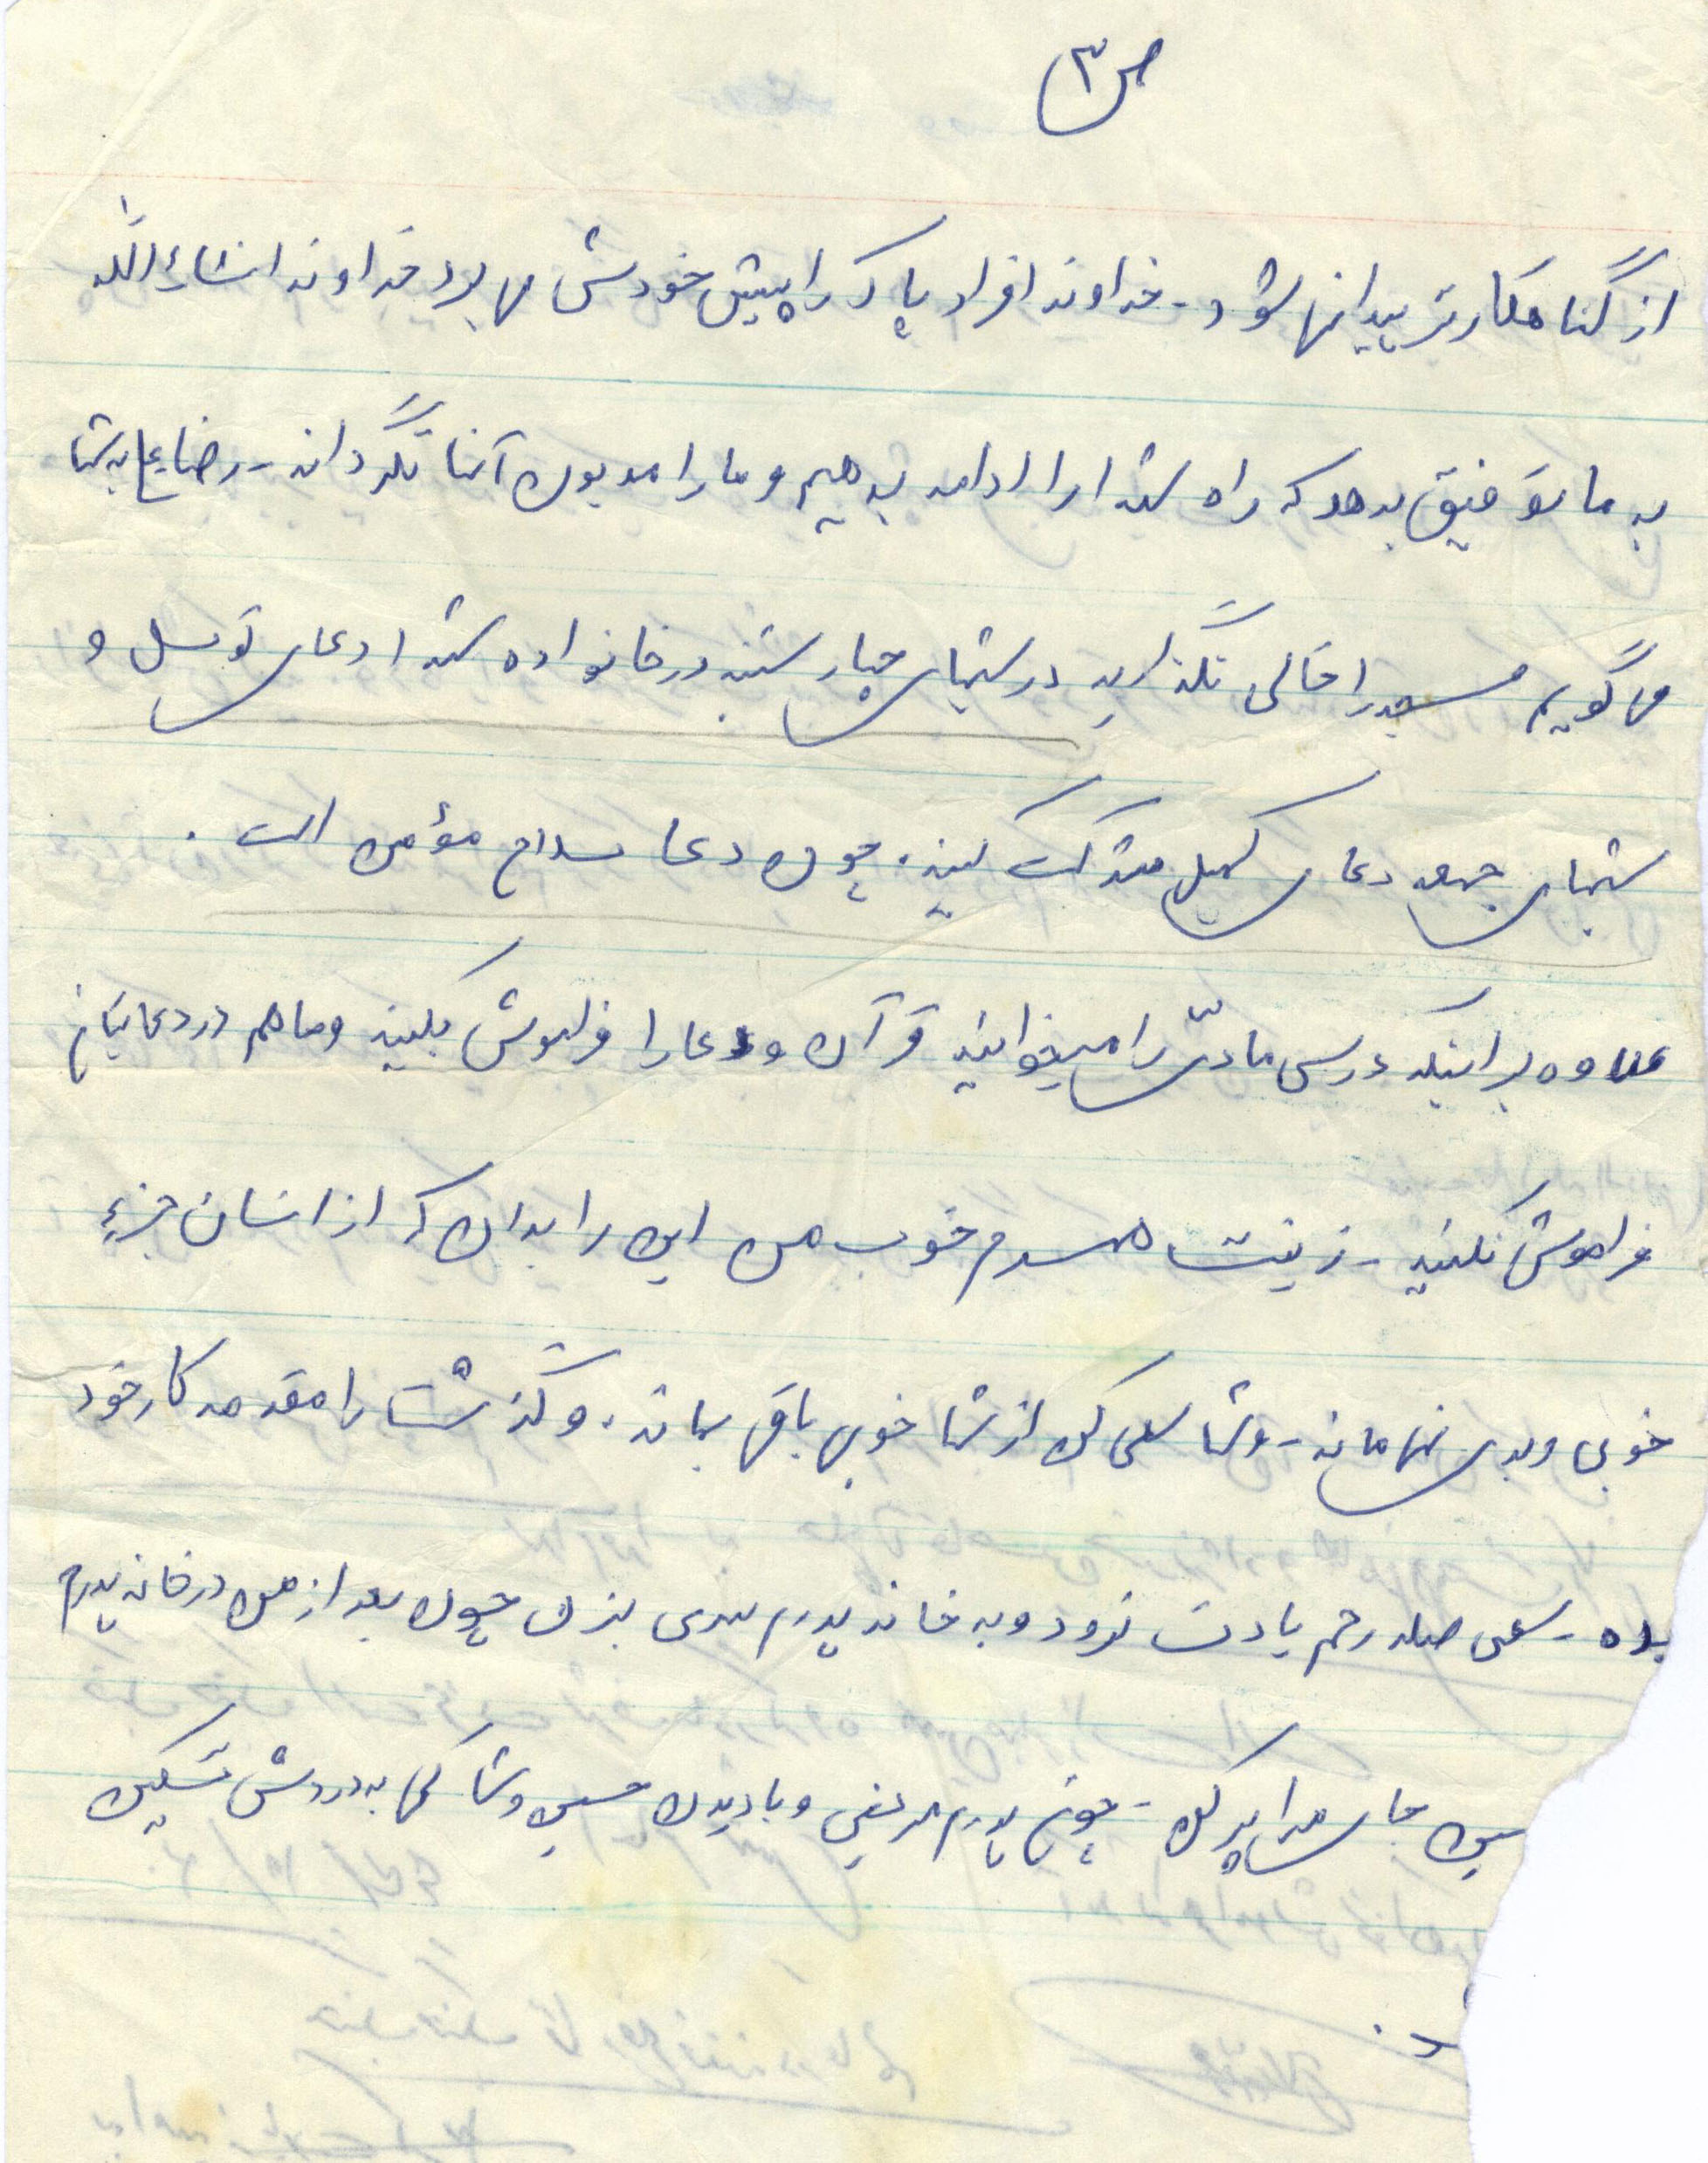 ص ۳
از گناهکارتر پیدا نمی‌شود - خداوند افراد پاک را پیش خودش می برد خداوند انشاءالله
به ما توفیق بدهد که راه شهدا را ادامه بدهیم و ما را مدیون آنها نگرداند - رضا به شما
می گویم مسجد را خالی نگذارید در شبهای چهارشنبه در خانواده شهدا دعای توسل و
شبهای جمعه دعای کمیل شرکت کنید. چون دعا سلاح مؤمن است.
علاوه بر اینکه درس مادّی را میخوانید قرآن و دعا را فراموش نکنید و ما هم در دعایتان
فراموش نکنید - زینت همسرم خوب من این را بدان که از انسان جزء
خوبی و بدی نمی ماند - و شما سعی کن از شما خوبی باقی بماند. و گذشت را مقدمه کار خود
بده - سعی صله رحم یادت نرود و به خانه پدرم سری بزن چون بعد از من در خانه پدرم
جای مرا پر کن - چون پدرم مریض و با دیدن حسین و شما کمی به دردش تسکین
د.